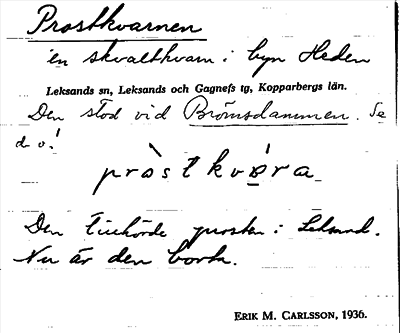 Prostkvarnen
en skvaltkvarn i byn Heden
Leksands sn, Leksands och Gagnefs tg, Kopparbergs län.
Den stod vid Brömsdammen. Se
d. o!
Den tillhörde prosten i Leksand.
Nu är den borta.
ERIK M. CARLSSON, 1936.